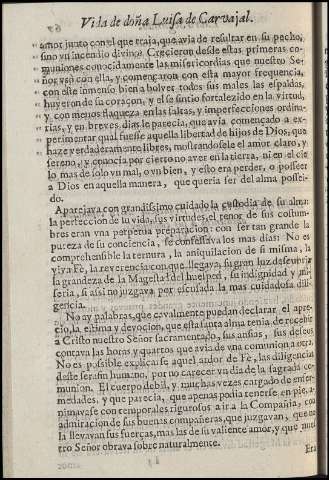 Vida de doña Luisa de Carvajal.
amor junto con el que traia, que avia de resultar en su pecho,
sino vn incendio divino. Crecieron desde estas primeras co-
muniones conocidamente las misericordias que nuestro Se-
ñor vsò con ella, y començaron con esta mayor frequencia,
con este inmenso bien a bolver todos sus males las espaldas,
huyeron de su coraçon, y el se sintio fortalezido en la virtud,
y con menos flaqueza en las faltas, y imperfecciones ordina-
rias, y en breves dias le parecia, que avia començado a ex-
perimentar qual fuesse aquella libertad de hijos de Dios, que
haze verdaderamente libres, mostrandosele el amor claro, y
sereno, y conocia por cierto no aver en la tierra, ni en el cie
lo mas de solo vn mal, o vn bien, y esto era perder, o posseer
a Dios en aquella manera, que queria ser del alma possei-
do.
Aparejava con grandissimo cuidado la custodia de su alma
la perfeccion de su vida, sus virtudes, el tenor de sus costum-
bres eran vna perpetua preparacion: con ser tan grande la
pureza de su conciencia, se confessava los mas dias: No es
comprehensible la ternura, la aniquilacion de si misma, la
viva Fè, la reverencia con que llegava, su gran luz descubrir
la grandeza de la Magestad del huesped, su indignidad y mi-
seria, si assi no juzgava por escusada la mas cuidadosa dili-
gencia.
No ay palabras, que cavalmente puedan declarar el apre-
cio, la estima y devocion, que esta santa alma tenia de recebir
a Christo nuestro Señor sacramentado, sus ansias, sus deseos
contava las horas y quartos que avia de vna comunion a otra
No es possible explicarse aquel ardor de Fè, las diligencias
deste serafin humano, por no carecer vn dia de la sagrada co-
munion. El cuerpo debil, y muchas vezes cargado de enfer-
medades, y que parecia, que apenas podia tenerse en pie, a-
nimavase con temporales rigurosos a ir a la Compañia, con
admiracion de sus buenas compañeras, que juzgavan, que no
la llevavan sus fuerças, mas las de su valiente amor, y que nues
tro Señor obrava sobre naturalmente.
Era